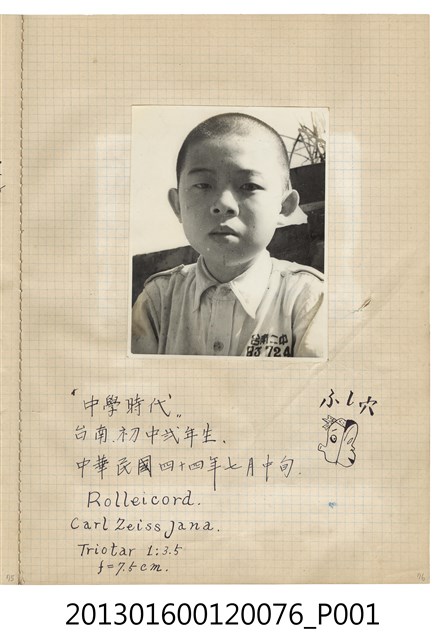 台南二中
93724
“中學時代”
台南.初中弎年生.
中華民國四十四年七月中旬.
ふし穴
Rolleicord.
Carl Zeiss Jana.
Triotar 1:3.5
f=7.5cm.
75
76
201301600120076_P001